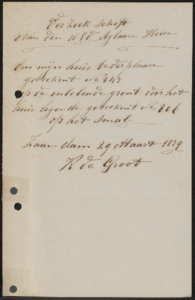 Verzoek schrift
Aan den Ed Agtbare Heere
Om mijn huis te verplaase
getekent No 247
op de onbebouwde gront voor het
huis legende getekent No 206
op het Smal
Zaandam 29 Maart 1879
K de Groot